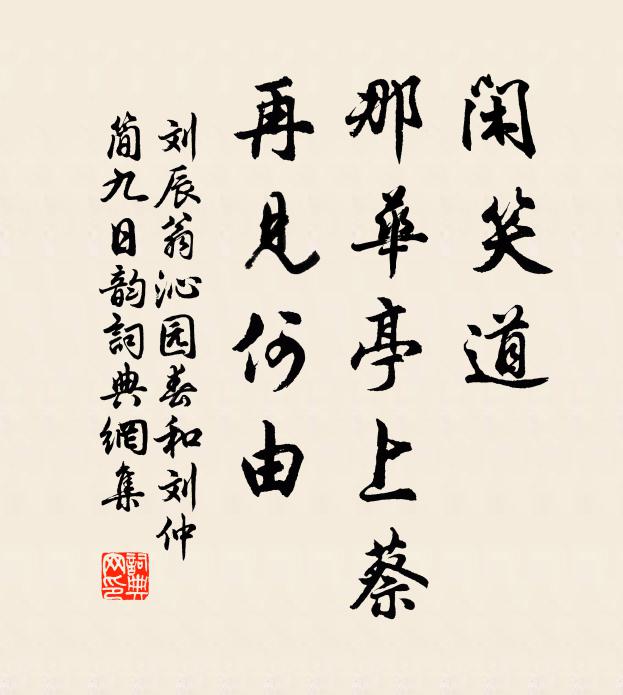 闲笑道
那華亭上蔡
再見何由
刘辰翁沁园春和刘仲
简九日韵詞典網集
詞典网印